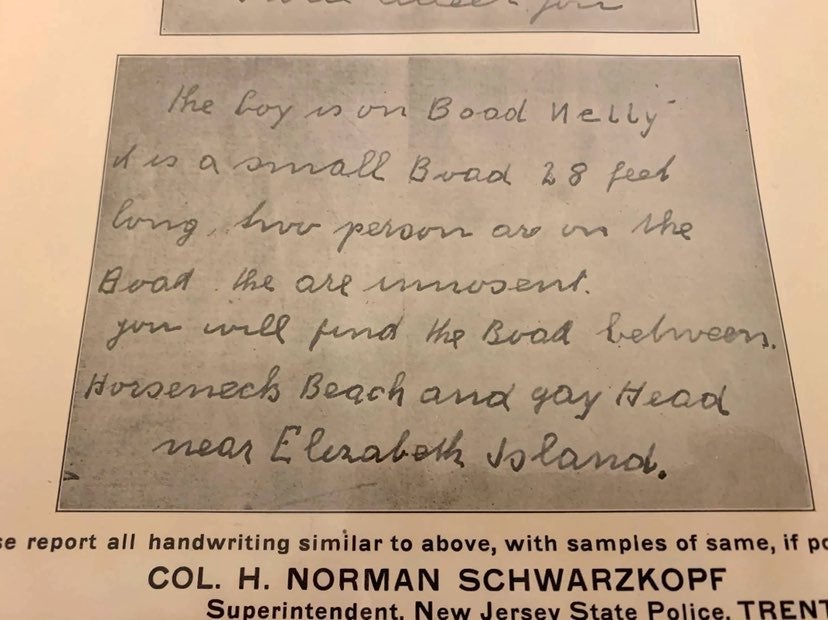 the boy is on Boad Nelly
it is a small Boad 28 feet
long, two person are on the
Boad. the are innosent.
you will find the Boad between
Horseneck Beach and gay Head
near Elizabeth Island.
se report all handwriting similar to above, with samples of same, if po
COL. H. NORMAN SCHWARZKOPF
Superintendent, New Jersey State Police, TRENT